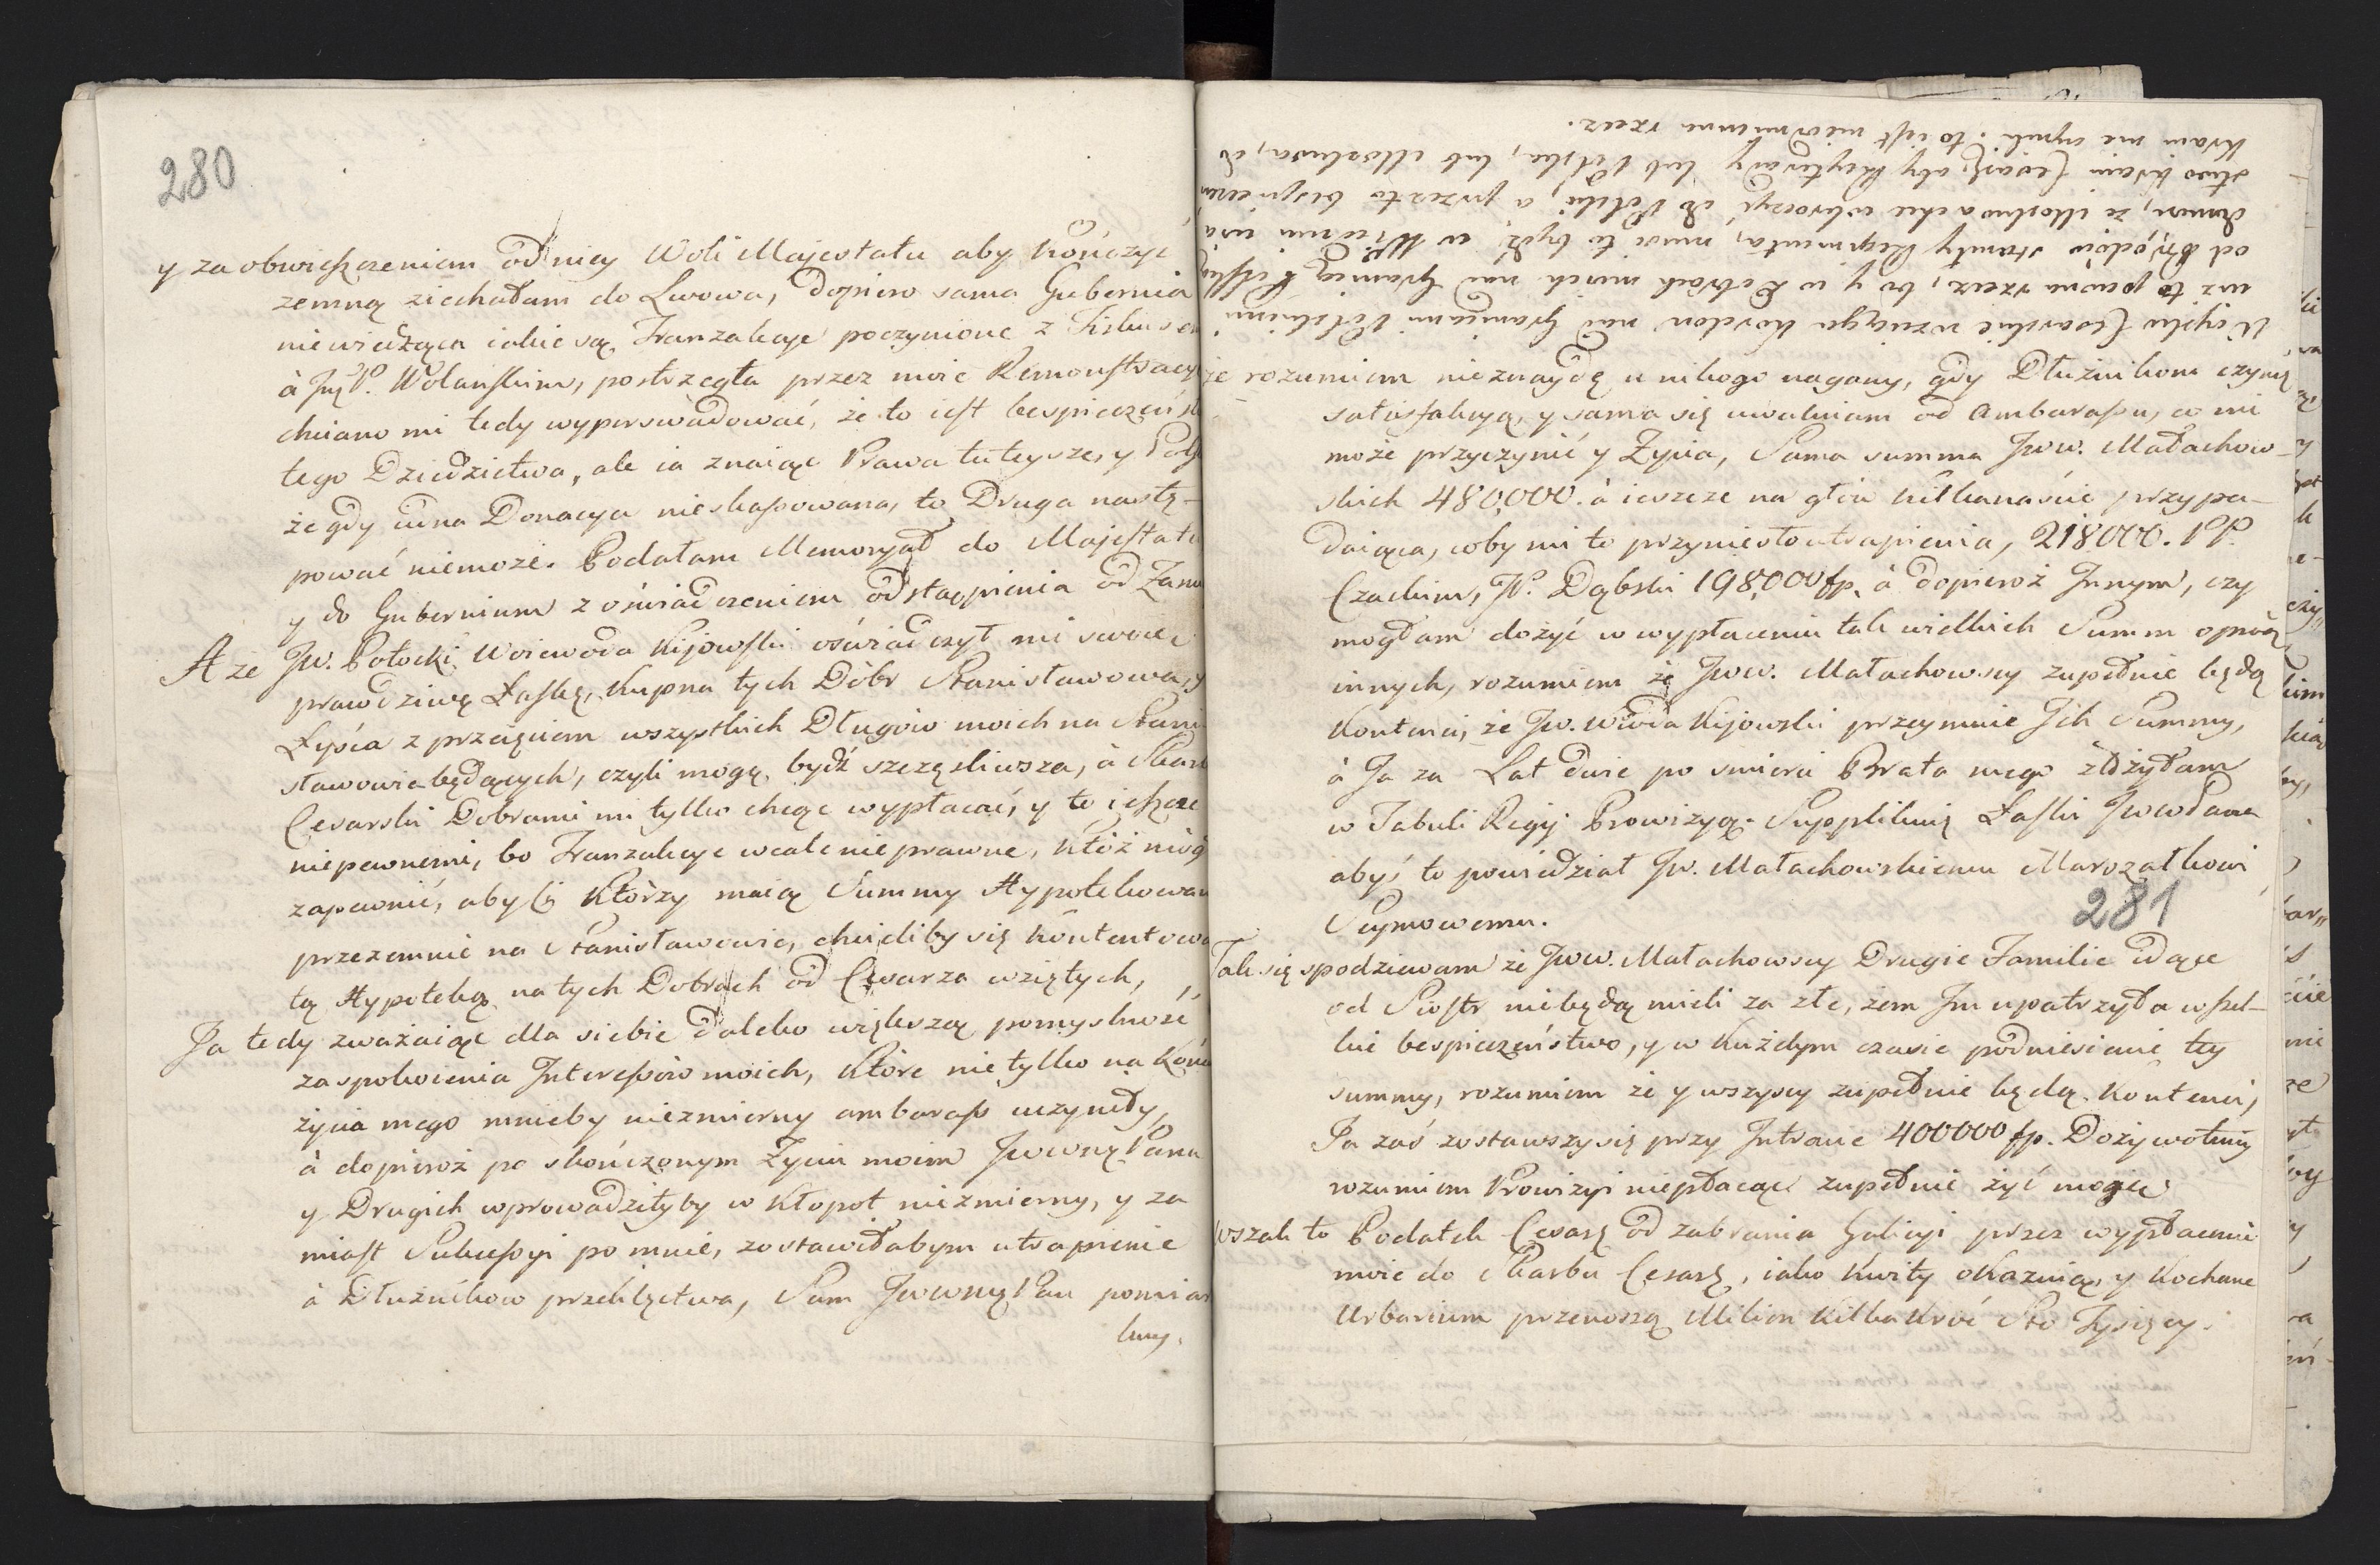 280
y za obwieszczeniem od niey Woli Majestatu aby kończyć
zemną ziechałam do Lwowa, dopiero sama Gubernia
niewiedząca iakie są Tranzakcye poczynione z Fiskusem
à Jmę P. Wolanskim, postrzegła przez moie Remonstracye
chciano mi tedy wyperswadować, że to iest bespieczeńst
tego Dziedzictwa, ale ia znaiąc Prawa tuteysze, y Pols
że gdy iedna Donacya nieskassowana, to Druga nastę-
pować niemoże. Podałam Memoryał do Majestatu
y do Gubernium z oświadczeniem odstąpienia od Zami
A że Jw. Potocki Woiewoda Kijowski oświadczył mi swoię
prawdziwą Łaskę, Kupna tych Dóbr Stanisławowa, y
Łyśca z przejęciem wszystkich Długów moich na Stani
sławowie będących, czyli mogę bydź szczęśliwsza, à Skarb
Cesarski Dobrami mi tylko chcąc wypłacać, y to ieszcze
niepewnemi, bo Tranzakcye wcale nieprawne, któż mógł
zapewnić, aby Ci Którzy maią Summy Hypotekowan
przezemnie na Stanisławowie, chcieliby się kontentowa
tą Hypoteką na tych Dobrach od Cesarza wziętych,
Ja tedy zważaiąc dla siebie daleko większą pomyslność
zaspokoienia Interessów moich, Które nie tylko na końcu
życia mego mnieby niezmierny ambarass uczyniły,
à dopieroż po skończonym Życiu moim Jwwnę Pana
y Drugich wprowadziłyby w Kłopot niezmierny, y za
miast Sukcessyi po mnie, zostawiłabym utrapienie
à Dłużników przeklęctwa, Sam Jwwnę Pan pomiar
kuy.
Wszystko Cesarskie wznieca Kordon nad Granicami Polskiemi
iuż to pewna rzecz, bo y w Dobrach moich nad Granicą
od Brzodów stanęły Regimenta, musi to bydź w Wiedniu
że Moskwa chce wkroczyć do Polski, a przez to
Kraiu Cesarz, aby lub Polska, lub Moskwa, do
Kraiu nie . to iest nieodmienna rzecz.
że rozumiem nieznaydę u nikogo nagany, gdy Dłużnikom czynię
satisfakcyą y sama się uwalniam od ambarassu, co mi
może przyczynić y Życia, Sama summa Jww. Małachow-
skich 480,000. à ieszcze na głów kilkanaście przypa-
daiąca, coby mi to przyniosło utrapienia, 218000. PP.
Czackim, JP. Dąbski 198,000 fp. à dopieroż Innym, czy
mogłam dożyć w wypłaceniu tak wielkich Summ oprócz
innych, rozumiem że Jww. Małachowscy zupełnie będą
Kontenci, że Jw. Wwda Kijowski przeymuie Ich Summy,
à Ja za Lat dwie po smierci Brata mego złożyłam
w Tabuli Regij Prowizyą. Supplikuię Łaski Jwwo Pana
abyś to powiedział Jw. Małachowskiemu Marszałkowi
Seymowemu.
281
Tak się spodziewam że Jww. Małachowscy Drugie Familie idące
od Siostr niebędą mieli za złe, żem Im upatrzyła wszel-
kie bespieczeństwo, y w każdym czasie podniesienie tey
summy, rozumiem że y wszyscy zupełnie będą Kontenci,
Ja zaś zostawszy się przy Intracie 400000 fp. Dożywotniey
rozumiem Prowizyi niepłacąc zupełnie żyć mogę.
Wszak to Podatek Cesarz od zabrania Galicyi przez wypłacenie
moie do Skarbu Cesarz, iako Kwity okazuią, y Kochane
Urbarium przenoszą Milion kilkakroć Sto Tysięcy.